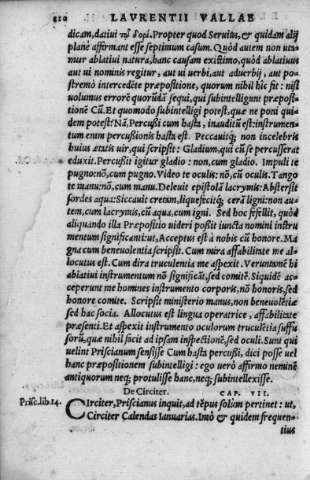 210 LAVRENTII VALLAE
dicam, datiui τῷ δορί. Propter quod Seruius, & quidam alij
planè affirmant esse septimum casum. Quòd autem non uta-
mur ablatiui natura, hanc causam existimo, quòd ablatiuus
aut ui nominis regitur, aut ui uerbi, aut aduerbij, aut po-
stremò intercedēte præpositione, quorum nihil hîc fit: nisi
uolumus errorē quorūdā sequi, qui subintelligunt præposi-
tionē Cū. Et quomodo subintelligi potest, quæ ne poni qui-
dem potest? Nā, Percußi cum hasta, inauditū est: instrumen-
tum enim percußionis hasta est. Peccauitq́; non incelebris
huius ætatis uir, qui scripsit: Gladium, qui cū se percusserat
eduxit. Percußit igitur gladio: non, cum gladio. Impuli te
pugno: nō, cum pugno. Video te oculis: nō, cū oculis. Tango
te manu: nō, cum manu. Deleuit epistolā lacrymis: Abstersit
sordes aqua: Siccauit cretam, liquefecitq́; cerā ligni: non au-
tem, cum lacrymis, cū aqua, cum igni. Sed hoc fefellit, quòd
aliquando illa Præpositio uideri poßit iuncta nomini instru
mentum significanti: ut, Acceptus est à nobis cū honore. Ma
gna cum beneuolentia scripsit. Cum mira affabilitate me al-
locutus est. Cum dira truculentia me aspexit. Veruntamē hi
ablatiui instrumentum nō significāt, sed comitē. Siquidē ac-
ceperunt me homines instrumento corporis, nō honoris, sed
honore comite. Scripsit ministerio manus, non beneuolētiæ
sed hac socia. Allocutus est lingua operatrice, affabilitate
præsenti. Et aspexit instrumento oculorum truculētia suffu
sorū, quæ nihil facit ad ipsam inspectionē, sed oculi. Sunt qui
uelint Priscianum sensisse Cum hasta percußi, dici posse uel
hanc præpositionem subintelligi: ego uerò affirmo neminē
antiquorum neq; protulisse hanc, neq; subintellexisse.
De Circiter. CAP. VII.
Prisc. lib. 14. Circiter, Priscianus inquit, ad tēpus solùm pertinet: ut,
Circiter Calendas Ianuarias. Imò & quidem frequen-
tius